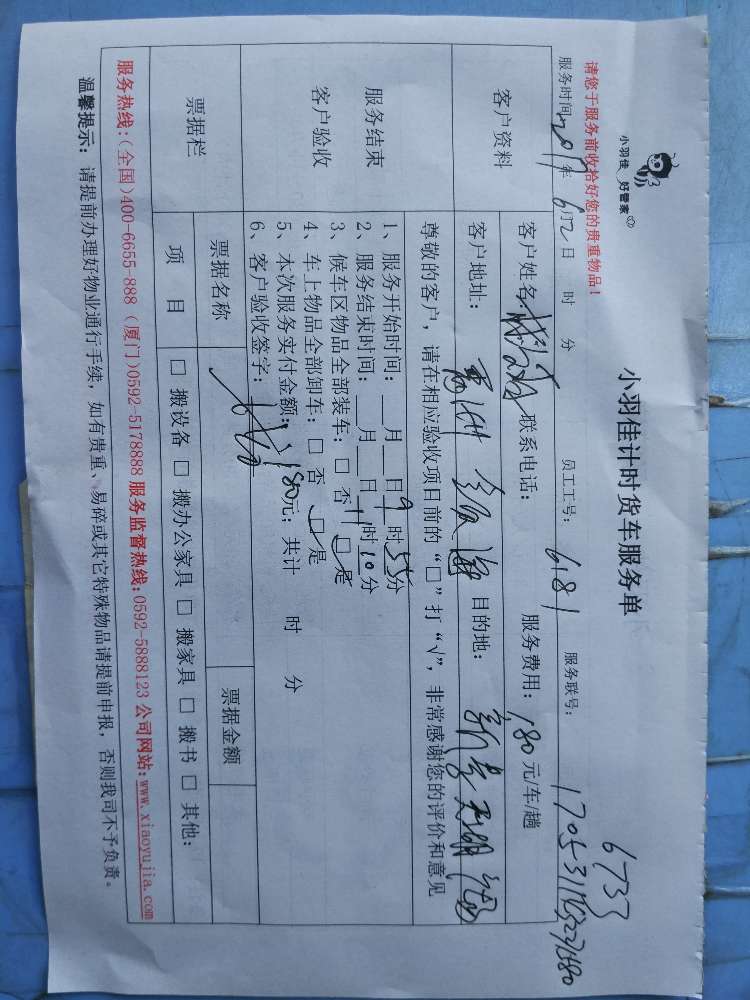 小羽佳 好管家
小羽佳计时货车服务单
6733
请您于服务前收拾好您的贵重物品！
服务时间：2017年6月2日 时 分 员工工号：6181 服务联号：
客户资料 客户姓名： 联系电话： 服务费用：180元/车/趟
客户地址： 目的地：
服务结束
客户验收
尊敬的客户，请在相应验收项目前的“□”打“√”，非常感谢您的评价和意见
1、服务开始时间：__月__日9时55分
2、服务结束时间：__月__日11时10分
3、候车区物品全部装车：□ 否 □ 是
4、车上物品全部卸车：□ 否 □ 是
5、本次服务实付金额：180元；共计 时 分
6、客户验收签字：
票据栏 票据名称 票据金额
项 目 □ 搬设备 □ 搬办公家具 □ 搬家具 □ 搬书 □ 其他：
服务热线：(全国)400-6655-888 (厦门)0592-5178888 服务监督热线：0592-5888123 公司网站：www.xiaoyujia.com
温馨提示： 请提前办理好物业通行手续，如有贵重、易碎或其它特殊物品请提前申报，否则我司不予负责。